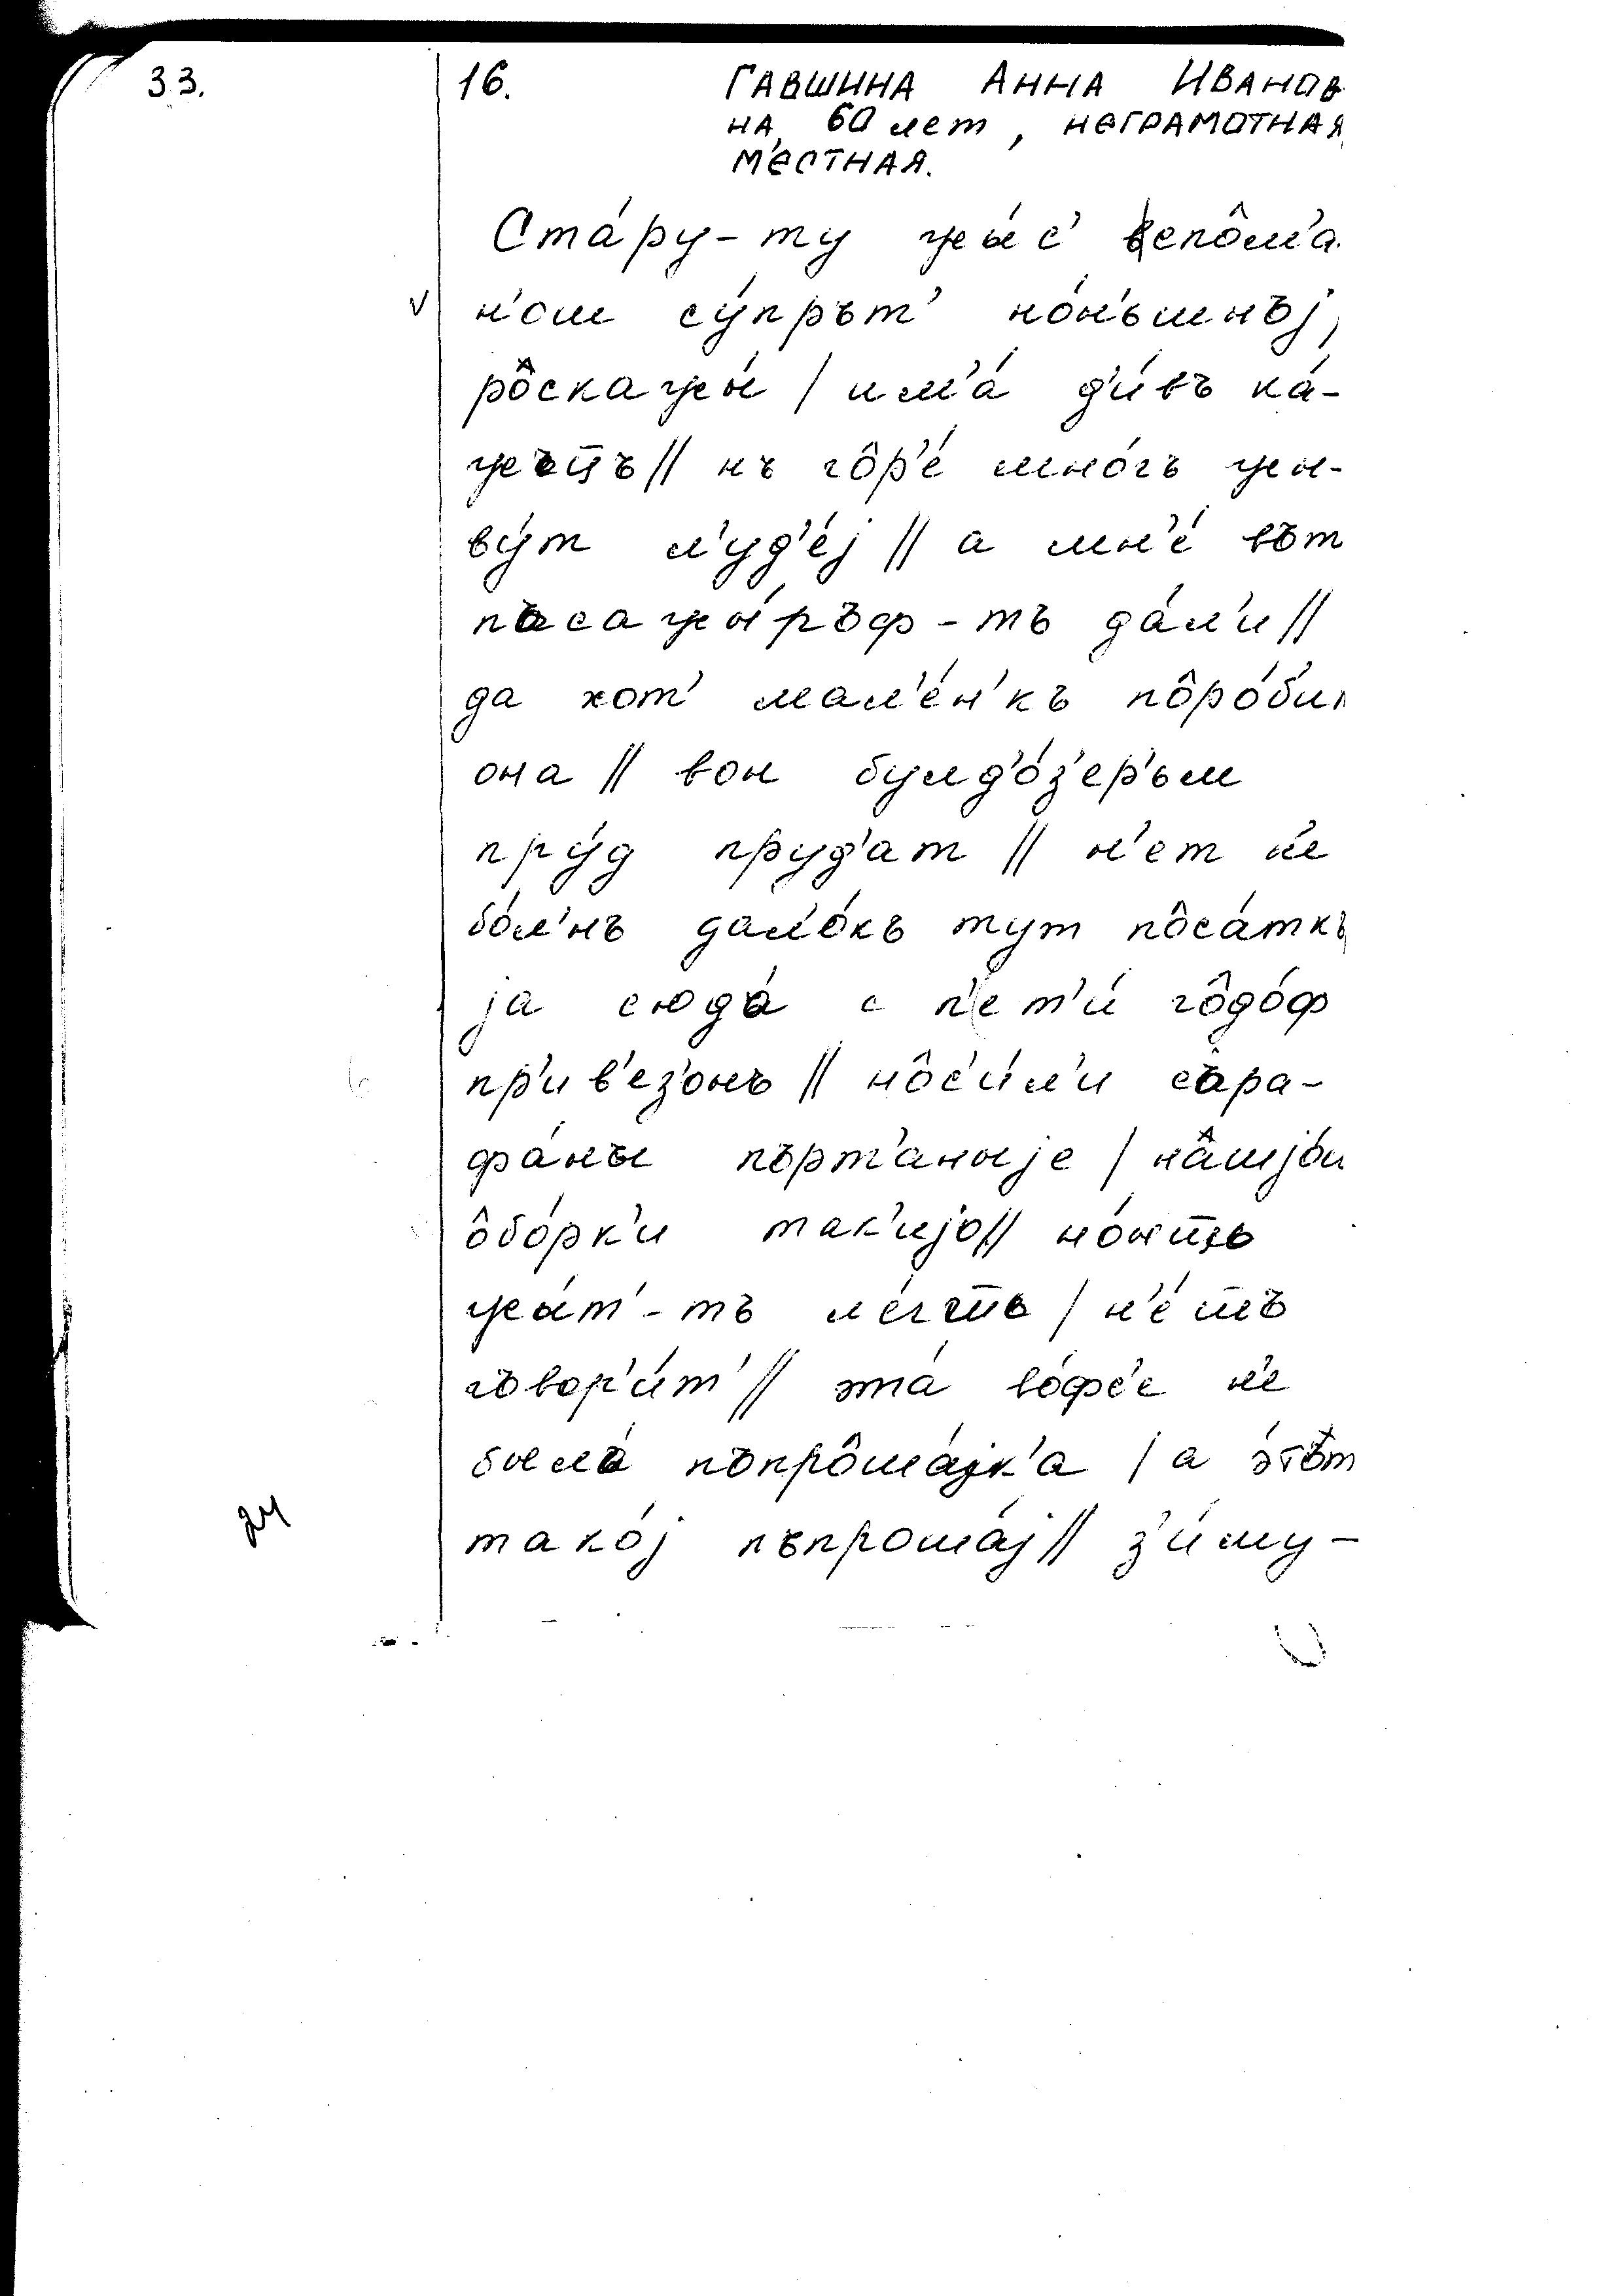 33. 16. ГАВШИНА АННА ИВАНОВ
НА, 60 лет, НЕГРАМОТНАЯ
МЕСТНАЯ.
Ста́ру-ту жы́с' вспо̂м'а
н'ом су́прът' но́н'ьшнъј,
ро̂скажы́ / им'а́ д'и́въ ка́-
жътцъ // нъ го̂р'е́ мно́гъ жы-
ву́т л'уд'е́ј // а мн'е́ вът
пасажы́ръф-тъ да́л'и //
да хот' мал'е́н'къ по̂ро́б'ил
она // вон булд'о́з'ер'ьм
пру́д пруд'ат // н'ет н'е
бо́л'нъ дал'о́къ тут по̂са́ткъ
ја сюда́ с п'ет'и́ го̂до́ф
пр'ив'ез'онъ // но̂с'и́л'и сара-
фа́ны пърт'аныје / на̂шјо́м
о̂бо́рк'и так'ијо // но́н'тцъ
жы́т'-тъ л'е́гчь / н'е́ шъ
говор'и́т' // эта́ во́фс'е н'е
была́ пъпро̂ша́јк'а / а э́тът
тако́ј пъпроша́ј // з'и́му-
24